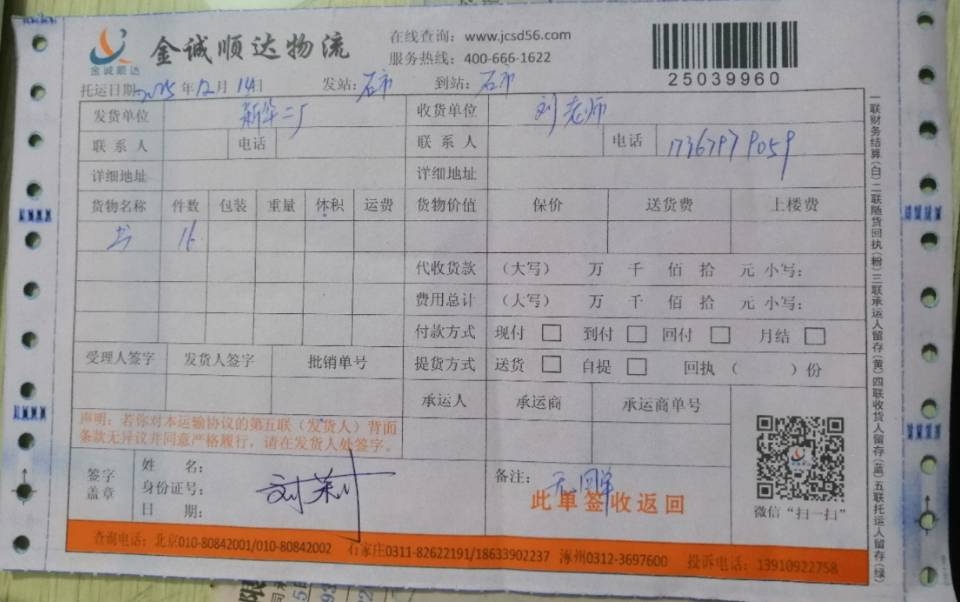 金诚顺达物流
金诚顺达
在线查询：www.jcsd56.com
服务热线：400-666-1622
25039960
托运日期 2025 年 12 月 14 日 发站：石市 到站：石市
发货单位 新华二厂 收货单位 刘老师
联系人 电话 联系人 电话 17367979059
详细地址 详细地址
货物名称 件数 包装 重量 体积 运费 货物价值 保价 送货费 上楼费
书 16
代收货款 （大写） 万 千 佰 拾 元 小写：
费用总计 （大写） 万 千 佰 拾 元 小写：
付款方式 现付 □ 到付 □ 回付 □ 月结 □
受理人签字 发货人签字 批销单号 提货方式 送货 □ 自提 □ 回执（ ）份
承运人 承运商 承运商单号
声明：若你对本运输协议的第五联（发货人）背面
条款无异议并同意严格履行，请在发货人处签字。
签字
盖章
姓 名：
身份证号：
日 期：
备注：
此单签收返回
微信“扫一扫”
一联财务结算(白)二联随货回执(粉)三联承运人留存(黄)四联收货人留存(蓝)五联托运人留存(绿)
查询电话：北京010-80842001/010-80842002 石家庄0311-82622191/18633902237 涿州0312-3697600 投诉电话：13910922758